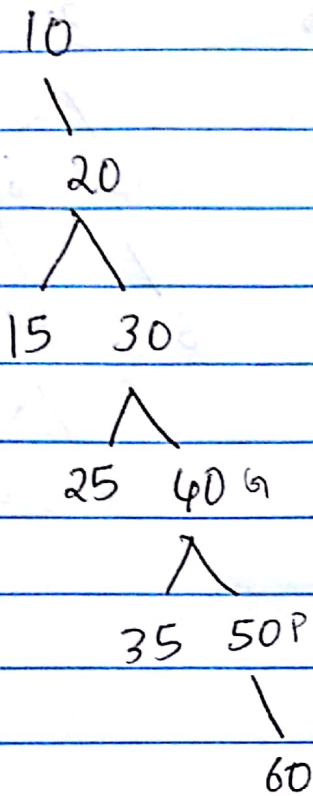 10
20
15 30
25 40 G
35 50 P
60